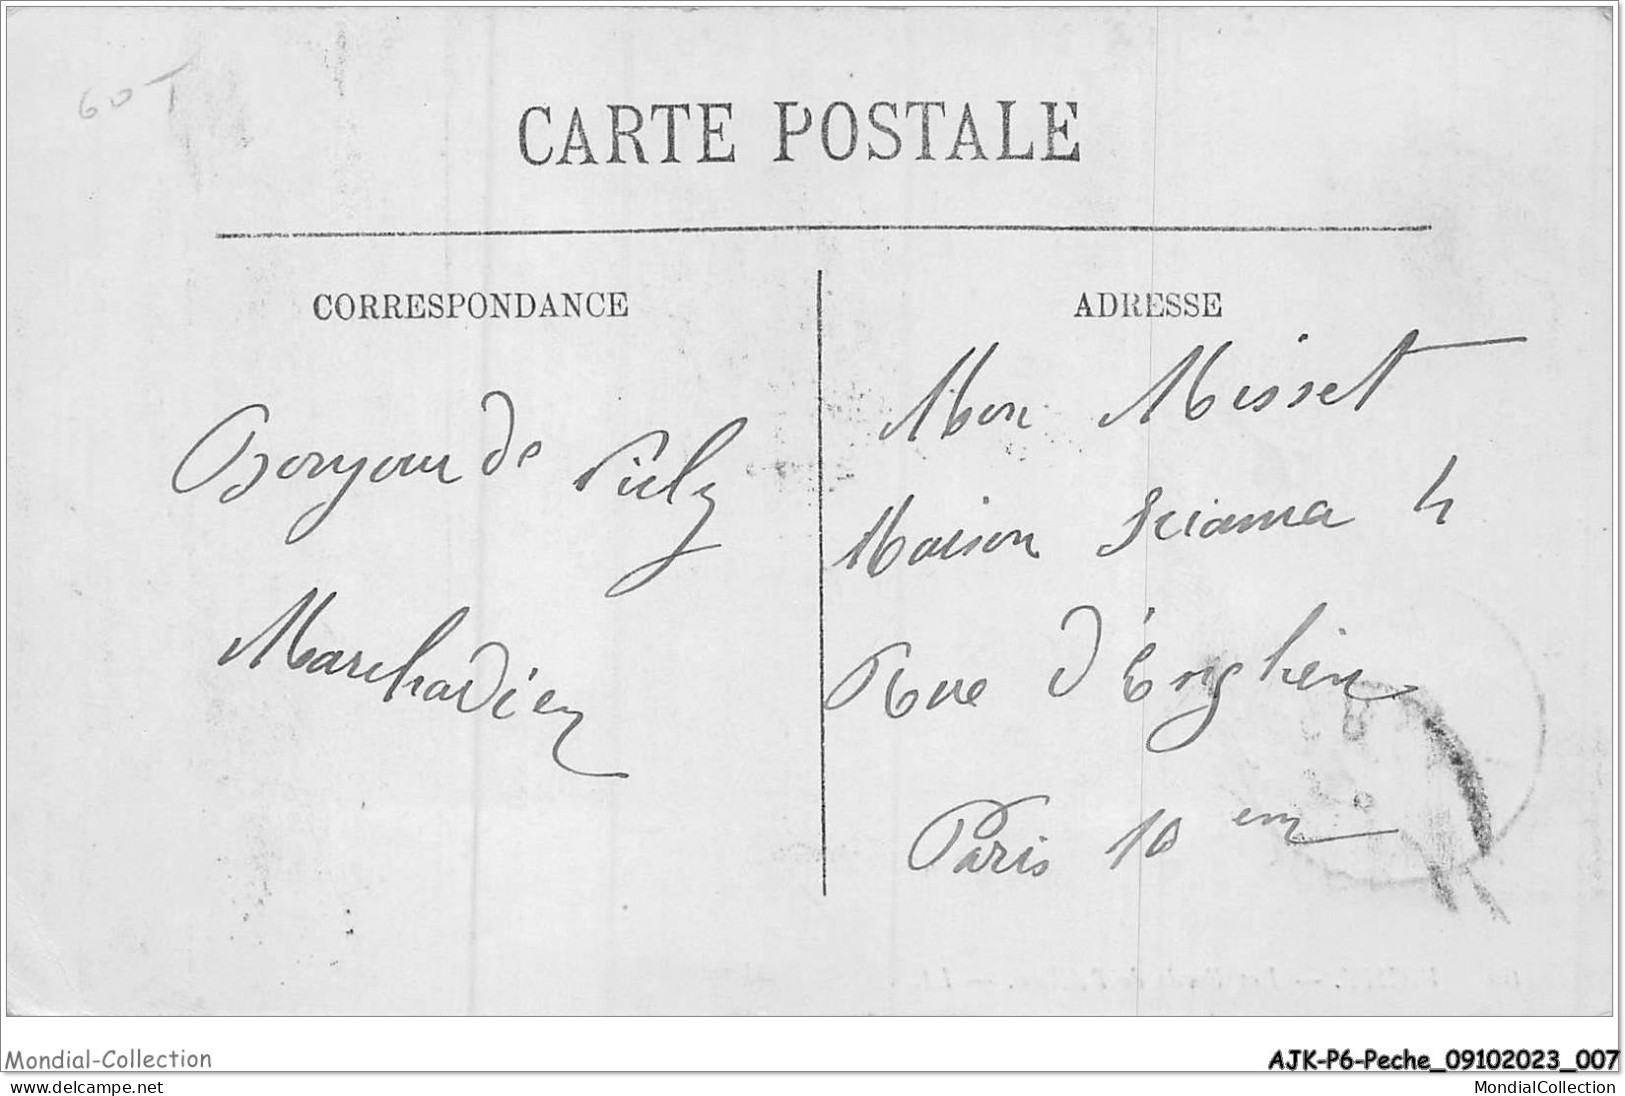 60T
CARTE POSTALE
CORRESPONDANCE
ADRESSE
Bonjour de
Marchadier
Mon Misset
Maison Sciama 4
Rue d'Enghien
Paris 10 em
Mondial-Collection
AJK-P6-Peche_09102023_007
www.delcampe.net
MondialCollection